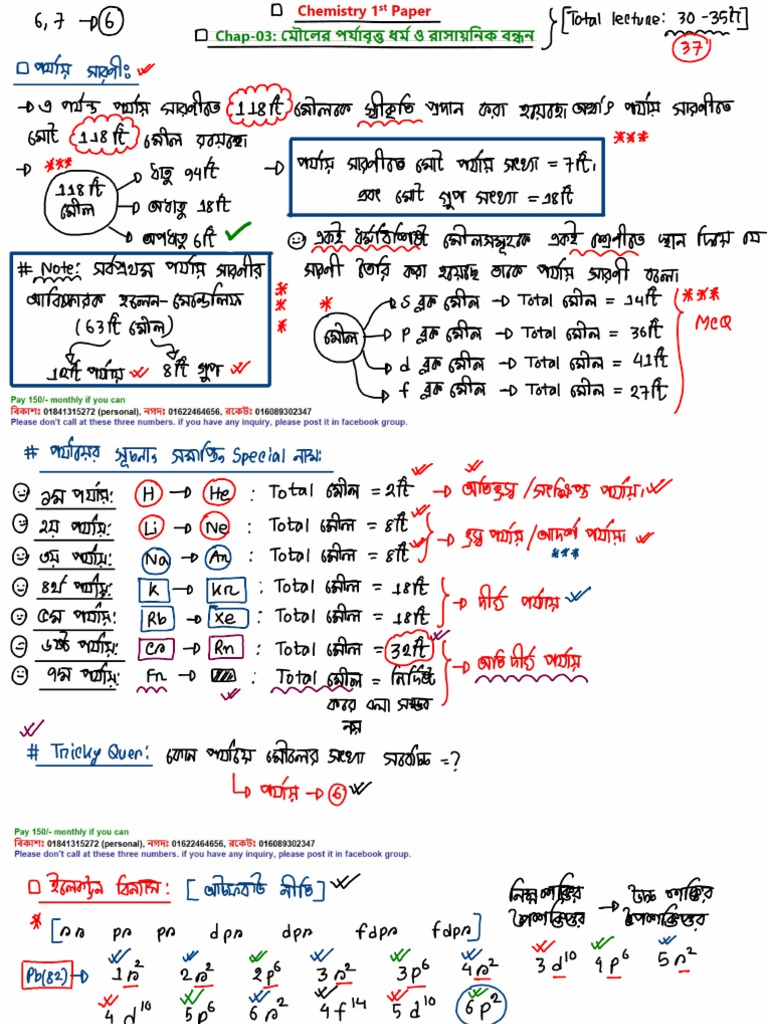 6, 7 → 6
Chemistry 1st Paper
Chap-03: মৌলের পর্যাবৃত্ত ধর্ম ও রাসায়নিক বন্ধন
[Total lecture: 30 -35টি]
37
পর্যায় সারণীঃ
→ এ পর্যন্ত পর্যায় সারণীতে 118টি মৌলকে স্বীকৃতি প্রদান করা হয়েছে। অর্থাৎ পর্যায় সারণীতে
মোট 118টি মৌল রয়েছে।
→ ***
118টি মৌল
ধাতু 94টি
অধাতু 18টি
অপধাতু 6টি
→ পর্যায় সারণীতে মোট পর্যায় সংখ্যা = 7টি,
এবং মোট গ্রুপ সংখ্যা = 18টি
***
একই ধর্মবিশিষ্ট মৌলসমূহকে একই শ্রেণীতে স্থান দিয়ে যে
সারণী তৈরি করা হয়েছে তাকে পর্যায় সারণী বলে।
# Note: সর্বপ্রথম পর্যায় সারণীর
আবিষ্কারক হলেন- মেন্ডেলিফ
(63টি মৌল)
12টি পর্যায় 8টি গ্রুপ
***
* মৌল
S ব্লক মৌল → Total মৌল = 14টি
P ব্লক মৌল → Total মৌল = 36টি
d ব্লক মৌল → Total মৌল = 41টি
f ব্লক মৌল → Total মৌল = 27টি
*** MCQ
Pay 150/- monthly if you can
বিকাশঃ 01841315272 (personal), নগদঃ 01622464656, রকেটঃ 016089302347
Please don't call at these three numbers. if you have any inquiry, please post it in facebook group.
# পর্যায়ের সূচনা, সমাপ্তি, Special নাম:
১ম পর্যায়: H → He : Total মৌল = 2টি → অতিহ্রস্ব /সংক্ষিপ্ত পর্যায়।
২য় পর্যায়: Li → Ne : Total মৌল = 8টি
→ হ্রস্ব পর্যায় /আদর্শ পর্যায়।
৩য় পর্যায়: Na → Ar : Total মৌল = 8টি
***
৪র্থ পর্যায়: K → Kr : Total মৌল = 18টি
→ দীর্ঘ পর্যায়
৫ম পর্যায়: Rb → Xe : Total মৌল = 18টি
৬ষ্ঠ পর্যায়: Cs → Rn : Total মৌল = 32টি
→ অতি দীর্ঘ পর্যায়
৭ম পর্যায়: Fr → Total মৌল = নির্দিষ্ট
করে বলা সম্ভব
নয়
# Tricky Ques: কোন পর্যায়ে মৌলের সংখ্যা সর্বোচ্চ =?
পর্যায় → 6
Pay 150/- monthly if you can
বিকাশঃ 01841315272 (personal), নগদঃ 01622464656, রকেটঃ 016089302347
Please don't call at these three numbers. if you have any inquiry, please post it in facebook group.
ইলেকট্রন বিন্যাস: [আউফবাউ নীতি]
নিম্ন শক্তির → উচ্চ শক্তির
* [ss ps ps dps dps fdps fdps]
Pb(82) → 1s² 2s² 2p⁶ 3s² 3p⁶ 4s² 3d¹⁰ 4p⁶ 5s²
4d¹⁰ 5p⁶ 6s² 4f¹⁴ 5d¹⁰ 6p²